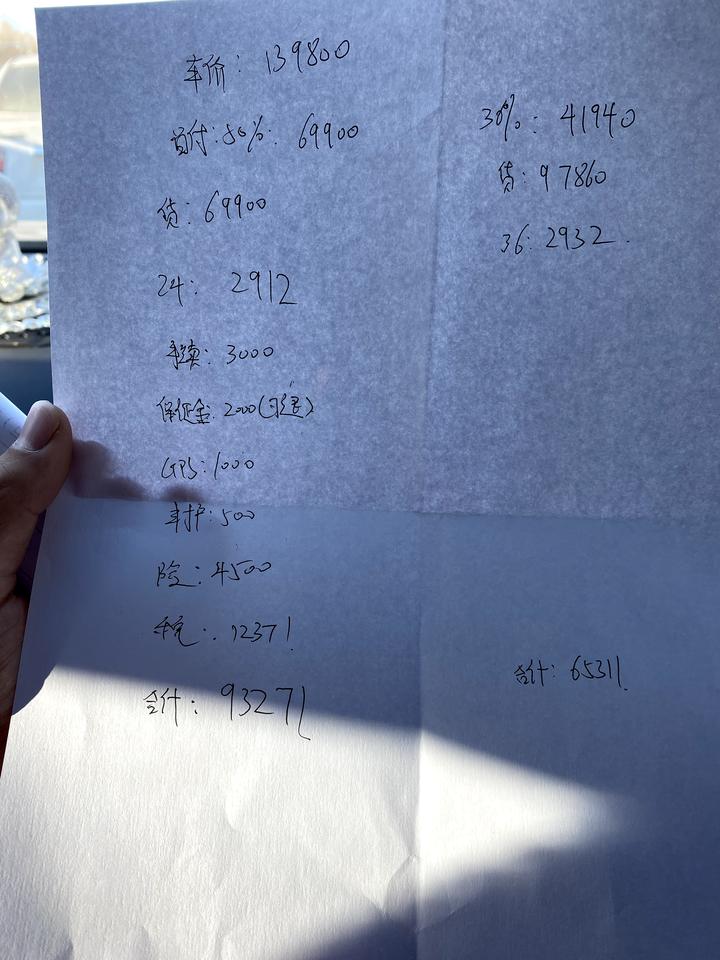 车价: 139800
首付: 50%: 69900
贷: 69900
24: 2912
手续: 3000
保证金: 2000(可退)
GPS: 1000
车护: 500
险: 4500
税: 12371
合计: 93271
30%: 41940
贷: 97860
36: 2932.
合计: 65311.